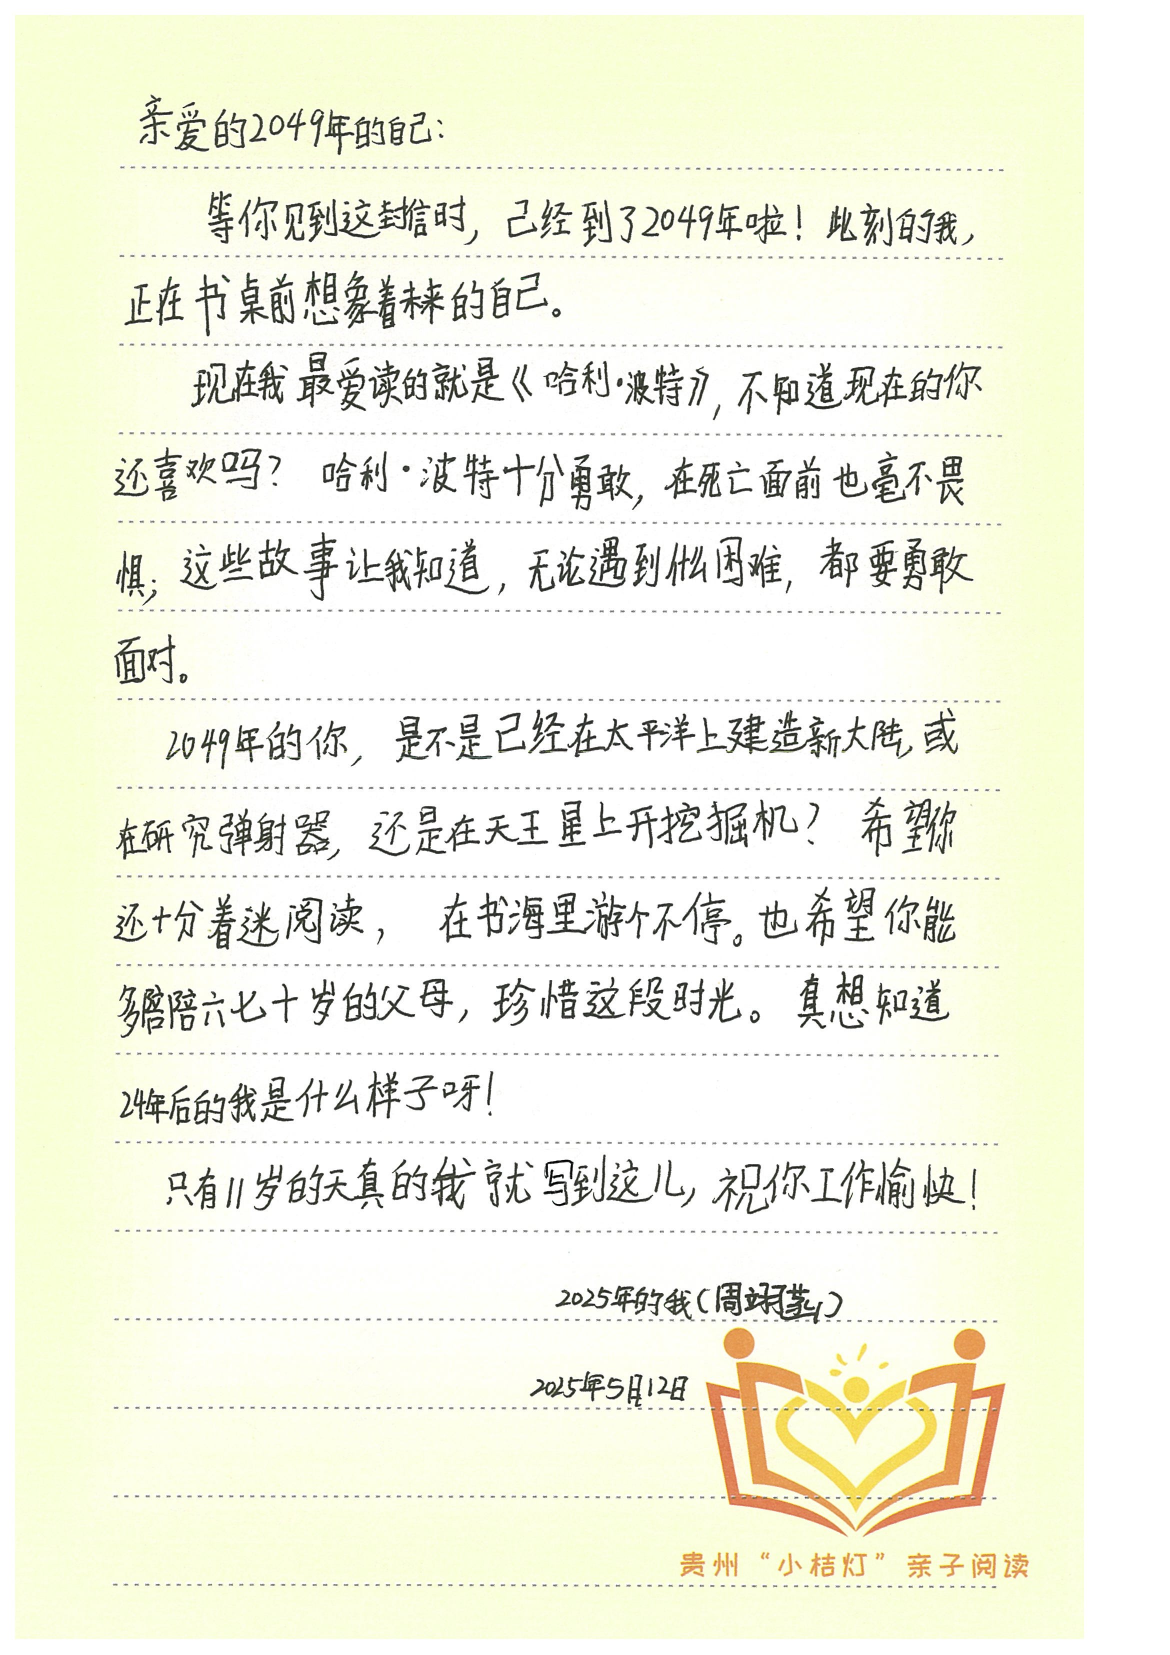 亲爱的2049年的自己：
等你见到这封信时，己经到了2049年啦！此刻的我，
正在书桌前想象着未来的自己。
现在我最爱读的就是《哈利·波特》，不知道现在的你
还喜欢吗？哈利·波特十分勇敢，在死亡面前也毫不畏
惧；这些故事让我知道，无论遇到什么困难，都要勇敢
面对。
2049年的你，是不是已经在太平洋上建造新大陆，或
在研究弹射器，还是在天王星上开挖掘机？希望你
还十分着迷阅读，在书海里游个不停。也希望你能
多陪陪六七十岁的父母，珍惜这段时光。真想知道
24年后的我是什么样子呀！
只有11岁的天真的我就写到这儿，祝你工作愉快！
2025年的我（周翊）
2025年5月12日
贵州“小桔灯”亲子阅读